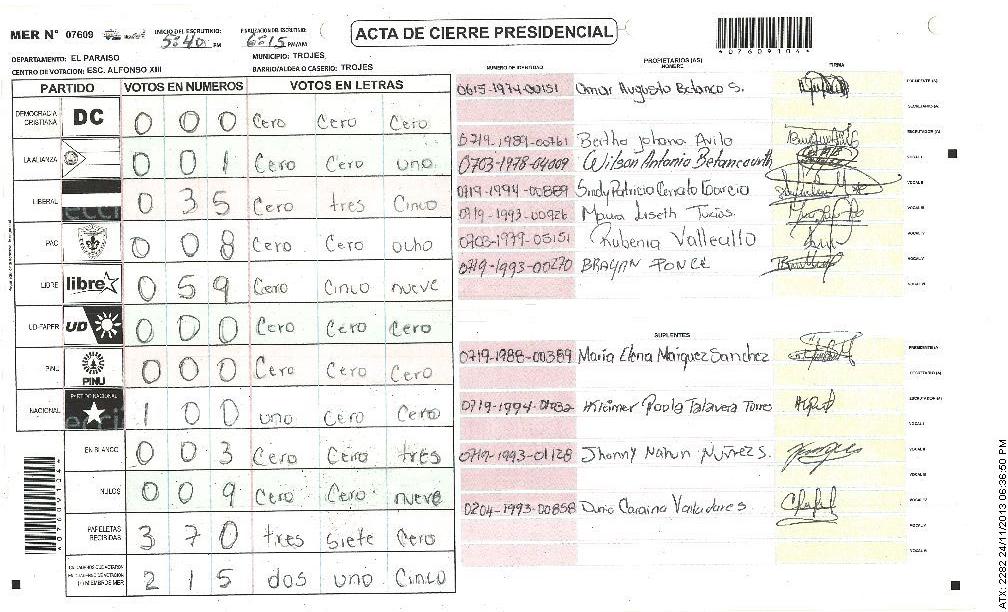 MER N° 07609
INICIO DEL ESCRUTINIO: 5:40 PM
FINALIZACION DEL ESCRUTINIO: 6:15 PM/AM
ACTA DE CIERRE PRESIDENCIAL
4076091044
DEPARTAMENTO: EL PARAISO
MUNICIPIO: TROJES
CENTRO DE VOTACION: ESC. ALFONSO XIII
BARRIO/ALDEA O CASERIO: TROJES
PARTIDO VOTOS EN NUMEROS VOTOS EN LETRAS
DEMOCRACIA CRISTIANA DC 0 0 0 Cero Cero Cero
LA ALIANZA 0 0 1 Cero Cero uno
LIBERAL 0 3 5 Cero tres Cinco
PAC 0 0 8 Cero Cero ocho
LIBRE libre 0 5 9 Cero Cinco nueve
UD-FAPER UD 0 0 0 Cero Cero Cero
PINU PINU 0 0 0 Cero Cero Cero
NACIONAL PARTIDO NACIONAL 1 0 0 uno Cero Cero
EN BLANCO 0 0 3 Cero Cero tres
NULOS 0 0 9 Cero Cero nueve
PAPELETAS RECIBIDAS 3 7 0 tres Siete Cero
(+) MIEMBROS MER 2 1 5 dos uno Cinco
PROPIETARIOS (AS)
NUMERO DE IDENTIDAD NOMBRE FIRMA
0615-1974-00151 Omar Augusto Betanco S. PRESIDENTE (A)
SECRETARIO (A)
0719-1989-00761 Bertha Johana Avila ESCRUTADOR (A)
0703-1978-04009 Wilson Antonio Betancourth VOCAL I
0719-1994-00889 VOCAL II
0719-1993-00926 VOCAL III
0703-1979-03151 Rubenia Vallecillo VOCAL IV
0719-1993-00270 BRAYAN PONCE VOCAL V
VOCAL VI
SUPLENTES
0719-1988-00389 Maria Elena Marquez Sanchez PRESIDENTE (A)
SECRETARIO (A)
Paola Talavera Torres ESCRUTADOR (A)
VOCAL I
0719-1993-01128 Jhonny Nahun Nuñez S. VOCAL II
VOCAL III
0704-1993-00858 Valladares VOCAL IV
VOCAL V
VOCAL VI
ATX: 2282 24/11/2013 06:36:50 PM